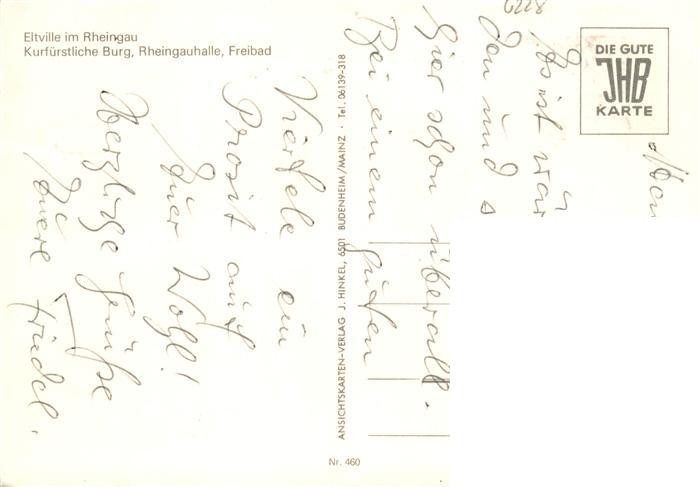 Eltville im Rheingau
Kurfürstliche Burg, Rheingauhalle, Freibad
6228
DIE GUTE
JHB
KARTE
Es ist war
den und
hier schon überall.
Bei einem guten
Viertele ein
Prosit auf
Euer Wohl!
Herzliche Grüße
Eure Friedel.
ANSICHTSKARTEN-VERLAG J. HINKEL, 6501 BUDENHEIM/MAINZ · Tel. 06139-318
Nr. 460